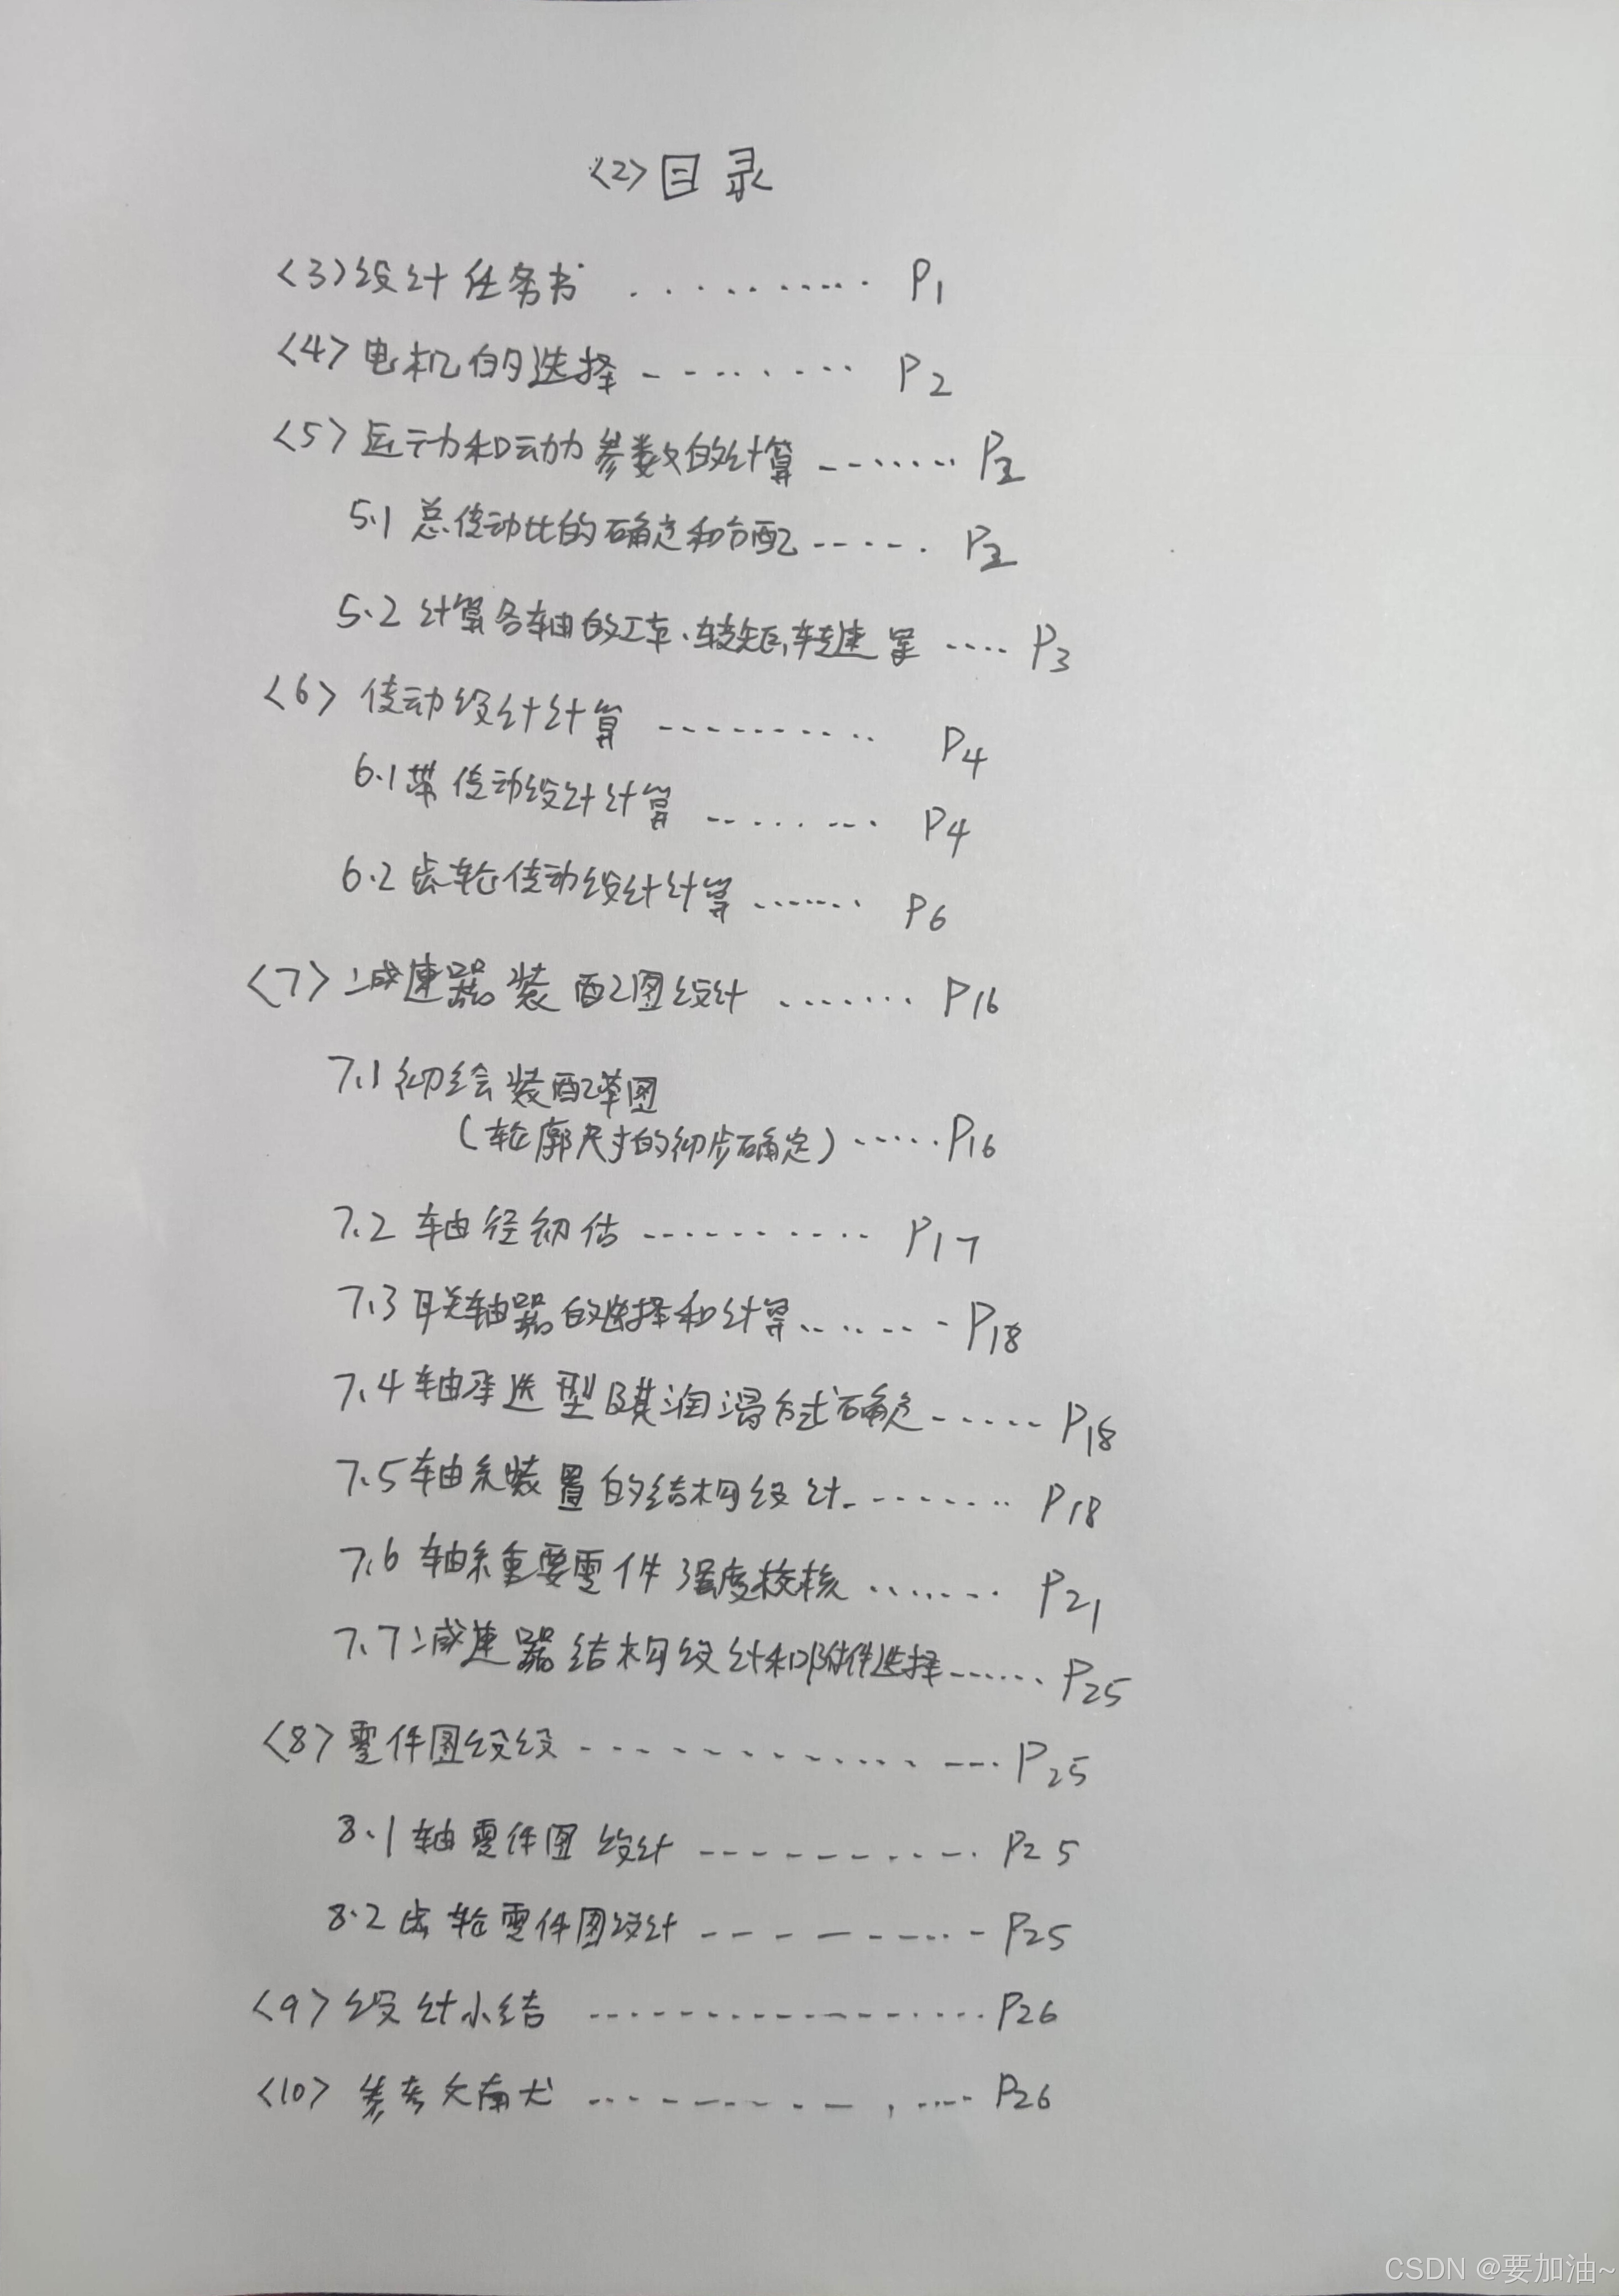 <2>目录
<3>设计任务书 .......... P1
<4>电机的选择 -------- P2
<5>运动和动力参数的计算 ------- P2
5.1 总传动比的确定和分配 ------ P2
5.2 计算各轴的工率、转矩,转速等 ···· P3
<6> 传动设计计算 ---------- P4
6.1 带传动设计计算 -------- P4
6.2 齿轮传动设计计算 ······· P6
<7>减速器装配图设计 ······· P16
7.1 初绘装配草图
(轮廓尺寸的初步确定) ······ P16
7.2 轴径初估 ---------- P17
7.3 联轴器的选择和计算 ........ P18
7.4 轴承选型及其润滑方式确定 ------ P18
7.5 轴系装置的结构设计 -------- P18
7.6 轴系重要零件强度校核 ······· P21
7.7 减速器结构设计和附件选择 ······ P25
<8>零件图设设 -------------- P25
8.1 轴零件图设计 ---------- P25
8.2 齿轮零件图设计 -------- P25
<9>设计小结 ---------------- P26
<10> 参考文南犬 ------------ P26
CSDN @要加油~